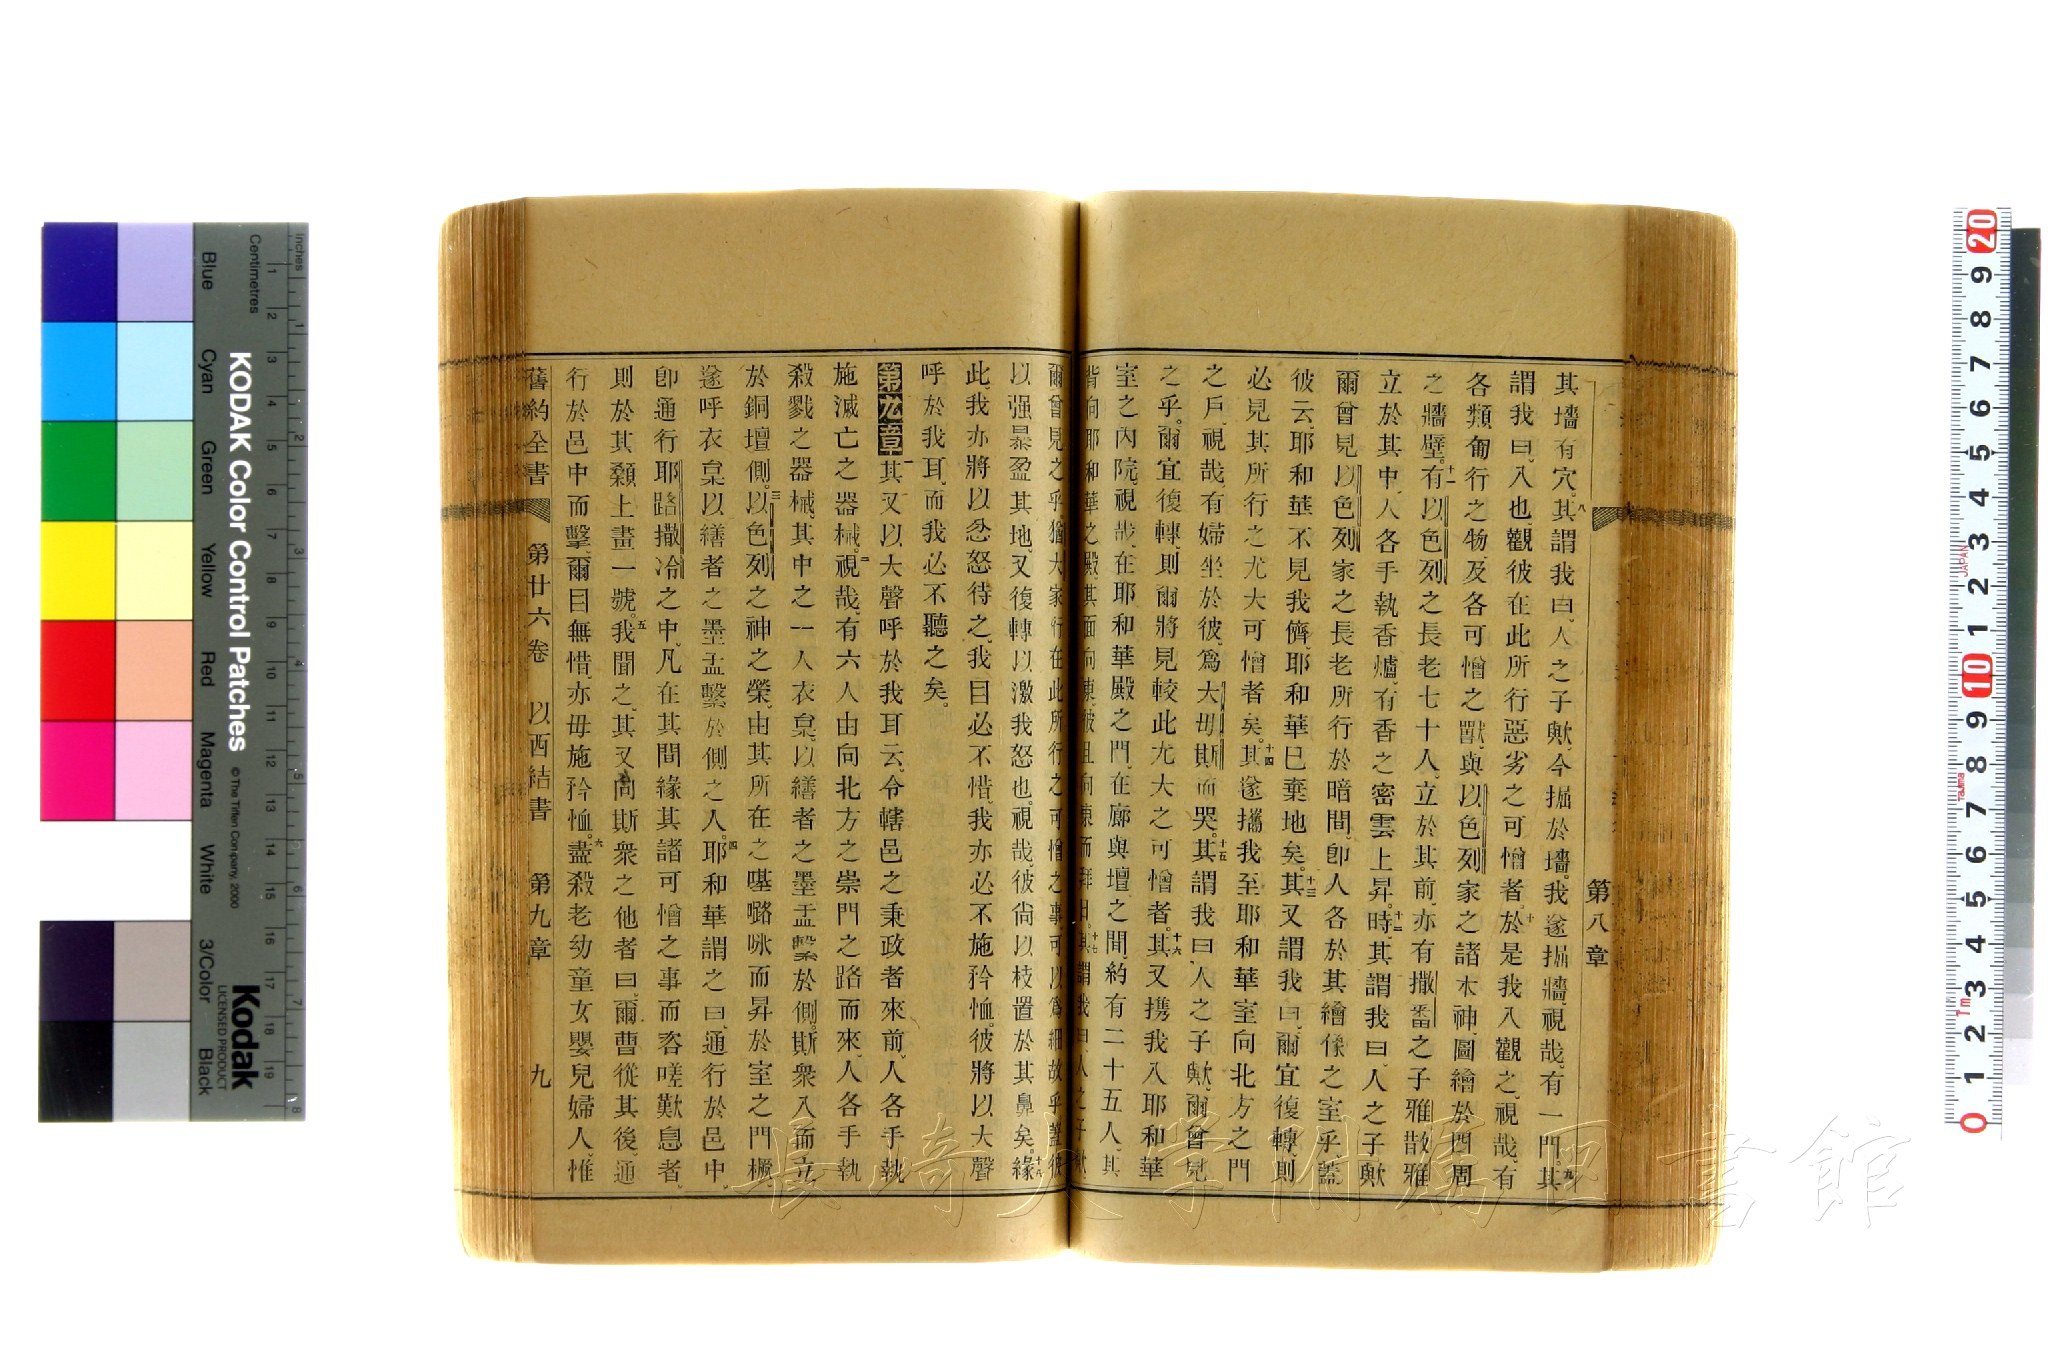 第八章
其墻有穴。八其謂我曰、人之子歟、今掘於墻。我遂掘牆、視哉、有一門。九其
謂我曰、入也、觀彼在此所行惡劣之可憎者。十於是我入觀之、視哉、有
各類匍行之物、及各可憎之獸、與以色列家之諸木神、圖繪於四周
之牆壁。十一有以色列之長老七十人、立於其前、亦有撒番之子雅散雅
立於其中、人各手執香爐、有香之密雲上昇。十二時、其謂我曰、人之子歟
爾曾見以色列家之長老所行於暗間、卽人各於其繪像之室乎、蓋
彼云、耶和華不見我儕、耶和華已棄地矣。十三其又謂我曰、爾宜復轉、則
必見其所行之尤大可憎者矣。十四其遂攜我至耶和華室向北方之門
之戶、視哉、有婦坐於彼、爲大毋斯而哭。十五其謂我曰、人之子歟、爾曾見
之乎。爾宜復轉、則爾將見較此尤大之可憎者。十六其又携我入耶和華
室之內院、視哉、在耶和華殿之門、在廊與壇之間、約有二十五人、其
背向耶和華之殿、其面向東、彼且向東而拜日。十七其謂我曰、人之子歟、
爾曾見之乎、猶大家行在此所行之可憎之事、可以爲細故乎、蓋彼
以强暴盈其地、又復轉以激我怒也。視哉、彼尙以枝置於其鼻矣。十八緣
此、我亦將以忿怒待之、我目必不惜、我亦必不施矜恤。彼將以大聲
呼於我耳、而我必不聽之矣。
第九章 一其又以大聲呼於我耳云、令轄邑之秉政者來前、人各手執
施滅亡之器械。二視哉、有六人由向北方之崇門之路而來、人各手執
殺戮之器械、其中之一人衣枲、以繕者之墨盂繫於側。斯衆入而立
於銅壇側。三以色列之神之榮、由其所在之𠼻𡀔咏而昇於室之門橛、
遂呼衣枲以繕者之墨盂繫於側之人。四耶和華謂之曰、通行於邑中、
卽通行耶路撒冷之中、凡在其間緣其諸可憎之事而咨嗟歎息者、
則於其顙上畫一號。五我聞之、其又向斯衆之他者曰、爾曹從其後、通
行於邑中而擊、爾目無惜、亦毋施矜恤。六盡殺老幼童女嬰兒婦人、惟
舊約全書 第廿六卷 以西結書 第九章 九
長崎大学附属図書館
KODAK Color Control Patches
© The Tiffen Company, 2000
Kodak
LICENSED PRODUCT
Inches
Centimetres
Blue
Cyan
Green
Yellow
Red
Magenta
White
3/Color
Black